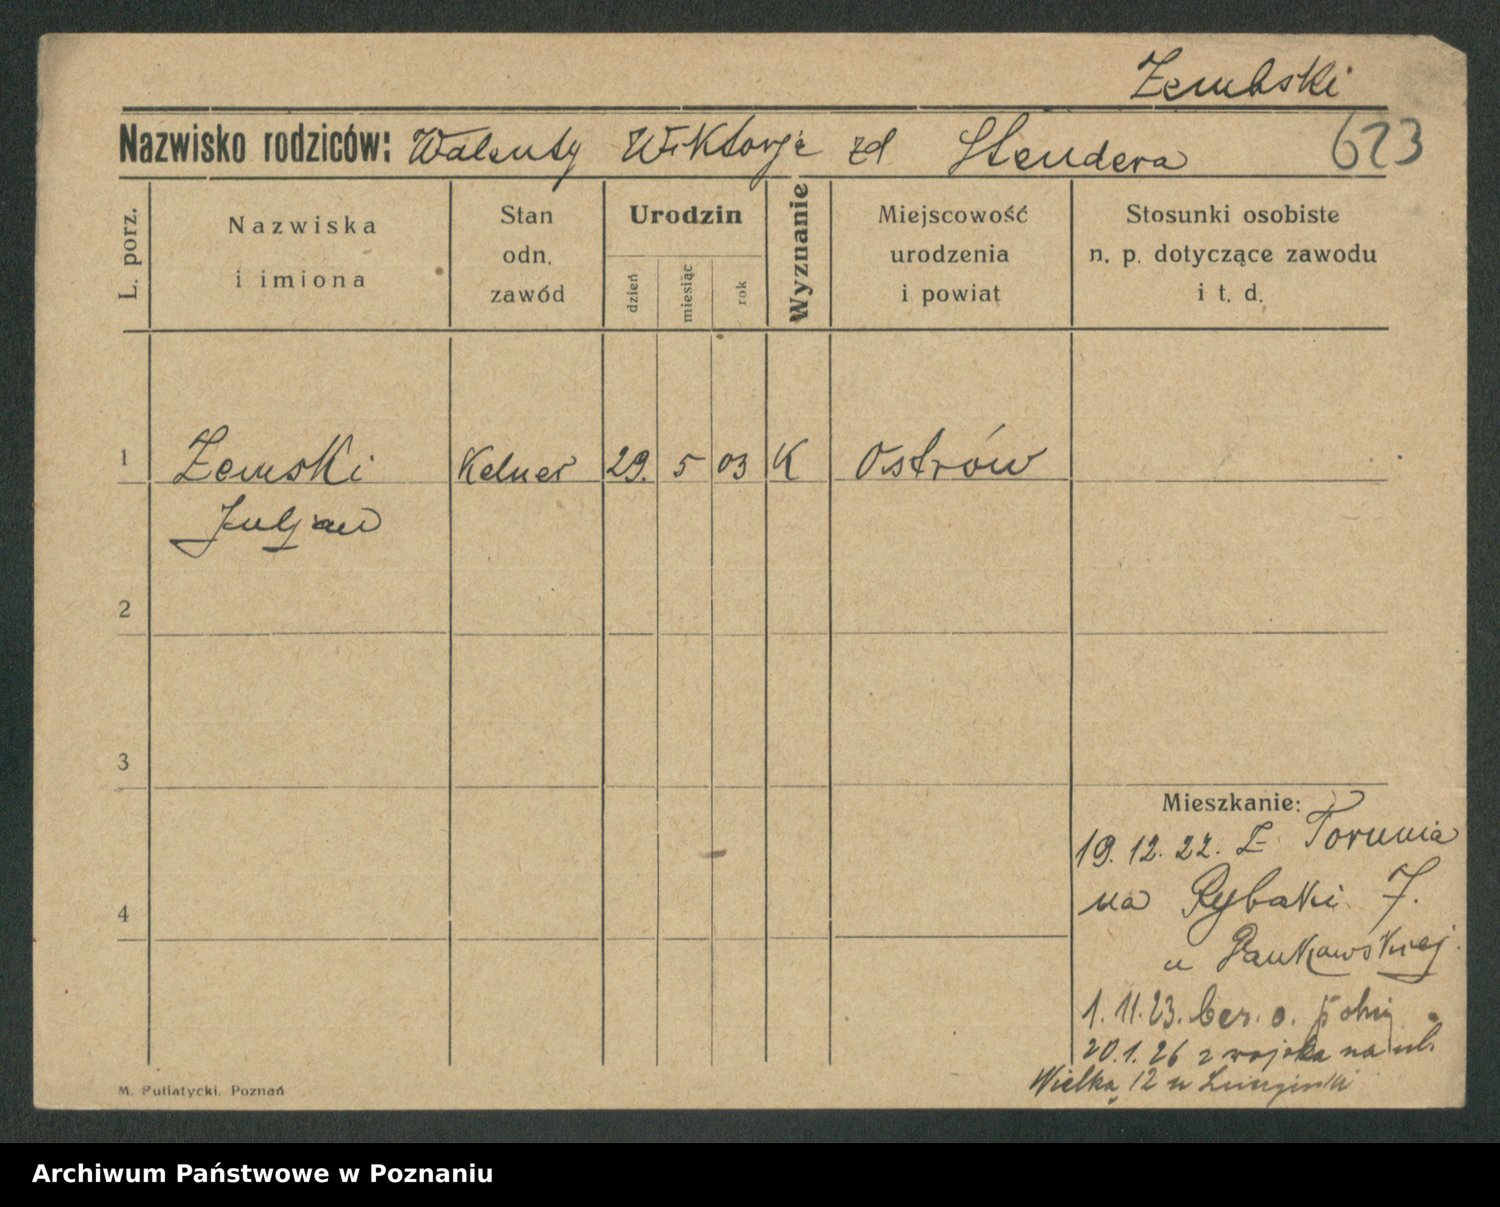 Zembski
Nazwisko rodziców: Walenty Wiktorja zd Stendera 623
L. porz.
Nazwiska
i imiona
Stan
odn.
zawód
Urodzin
dzień
miesiąc
rok
Wyznanie
Miejscowość
urodzenia
i powiat
Stosunki osobiste
n. p. dotyczące zawodu
i t. d.
1 Zemski Kelner 29. 5 03 K Ostrów
Juljan
2
3
Mieszkanie:
19. 12. 22. Z Torunia
na Rybaki 7.
4
u Pankowskiej.
1. 11. 23.
20. 1. 26 z wojska na ul.
Wielka 12 u
M. Putiatycki. Poznań
Archiwum Państwowe w Poznaniu